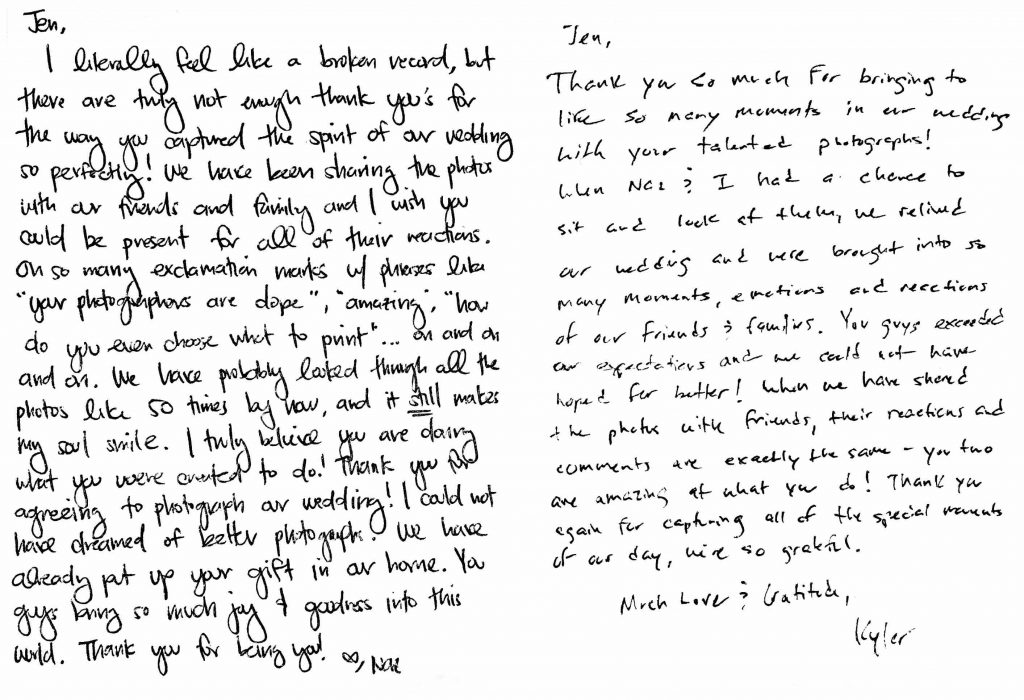 Jen,
I literally feel like a broken record, but
there are truly not enough thank you's for
the way you captured the spirit of our wedding
so perfectly! We have been sharing the photos
with our friends and family and I wish you
could be present for all of their reactions.
Oh so many exclamation marks w/ phrases like
"your photographers are dope", "amazing", "how
do you even choose what to print"... on and on
and on. We have probably looked through all the
photos like 50 times by now, and it still makes
my soul smile. I truly believe you are doing
what you were created to do! Thank you for
agreeing to photograph our wedding! I could not
have dreamed of better photographs! We have
already put up your gift in our home. You
guys bring so much joy & goodness into this
world. Thank you for being you!
♡, Naz
Jen,
Thank you so much for bringing to
life so many moments in our wedding
with your talented photographs!
When Naz & I had a chance to
sit and look at them, we relived
our wedding and were brought into so
many moments, emotions and reactions
of our friends & families. You guys exceeded
our expectations and we could not have
hoped for better! When we have shared
the photos with friends, their reactions and
comments are exactly the same - you two
are amazing at what you do! Thank you
again for capturing all of the special moments
of our day, we're so grateful.
Much Love & Gratitude,
Kyler